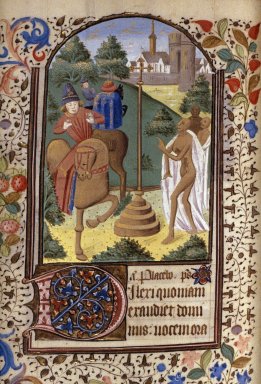 Placebo. ps
Dilexi quoniam
exaudiet domi
nus: vocem ora